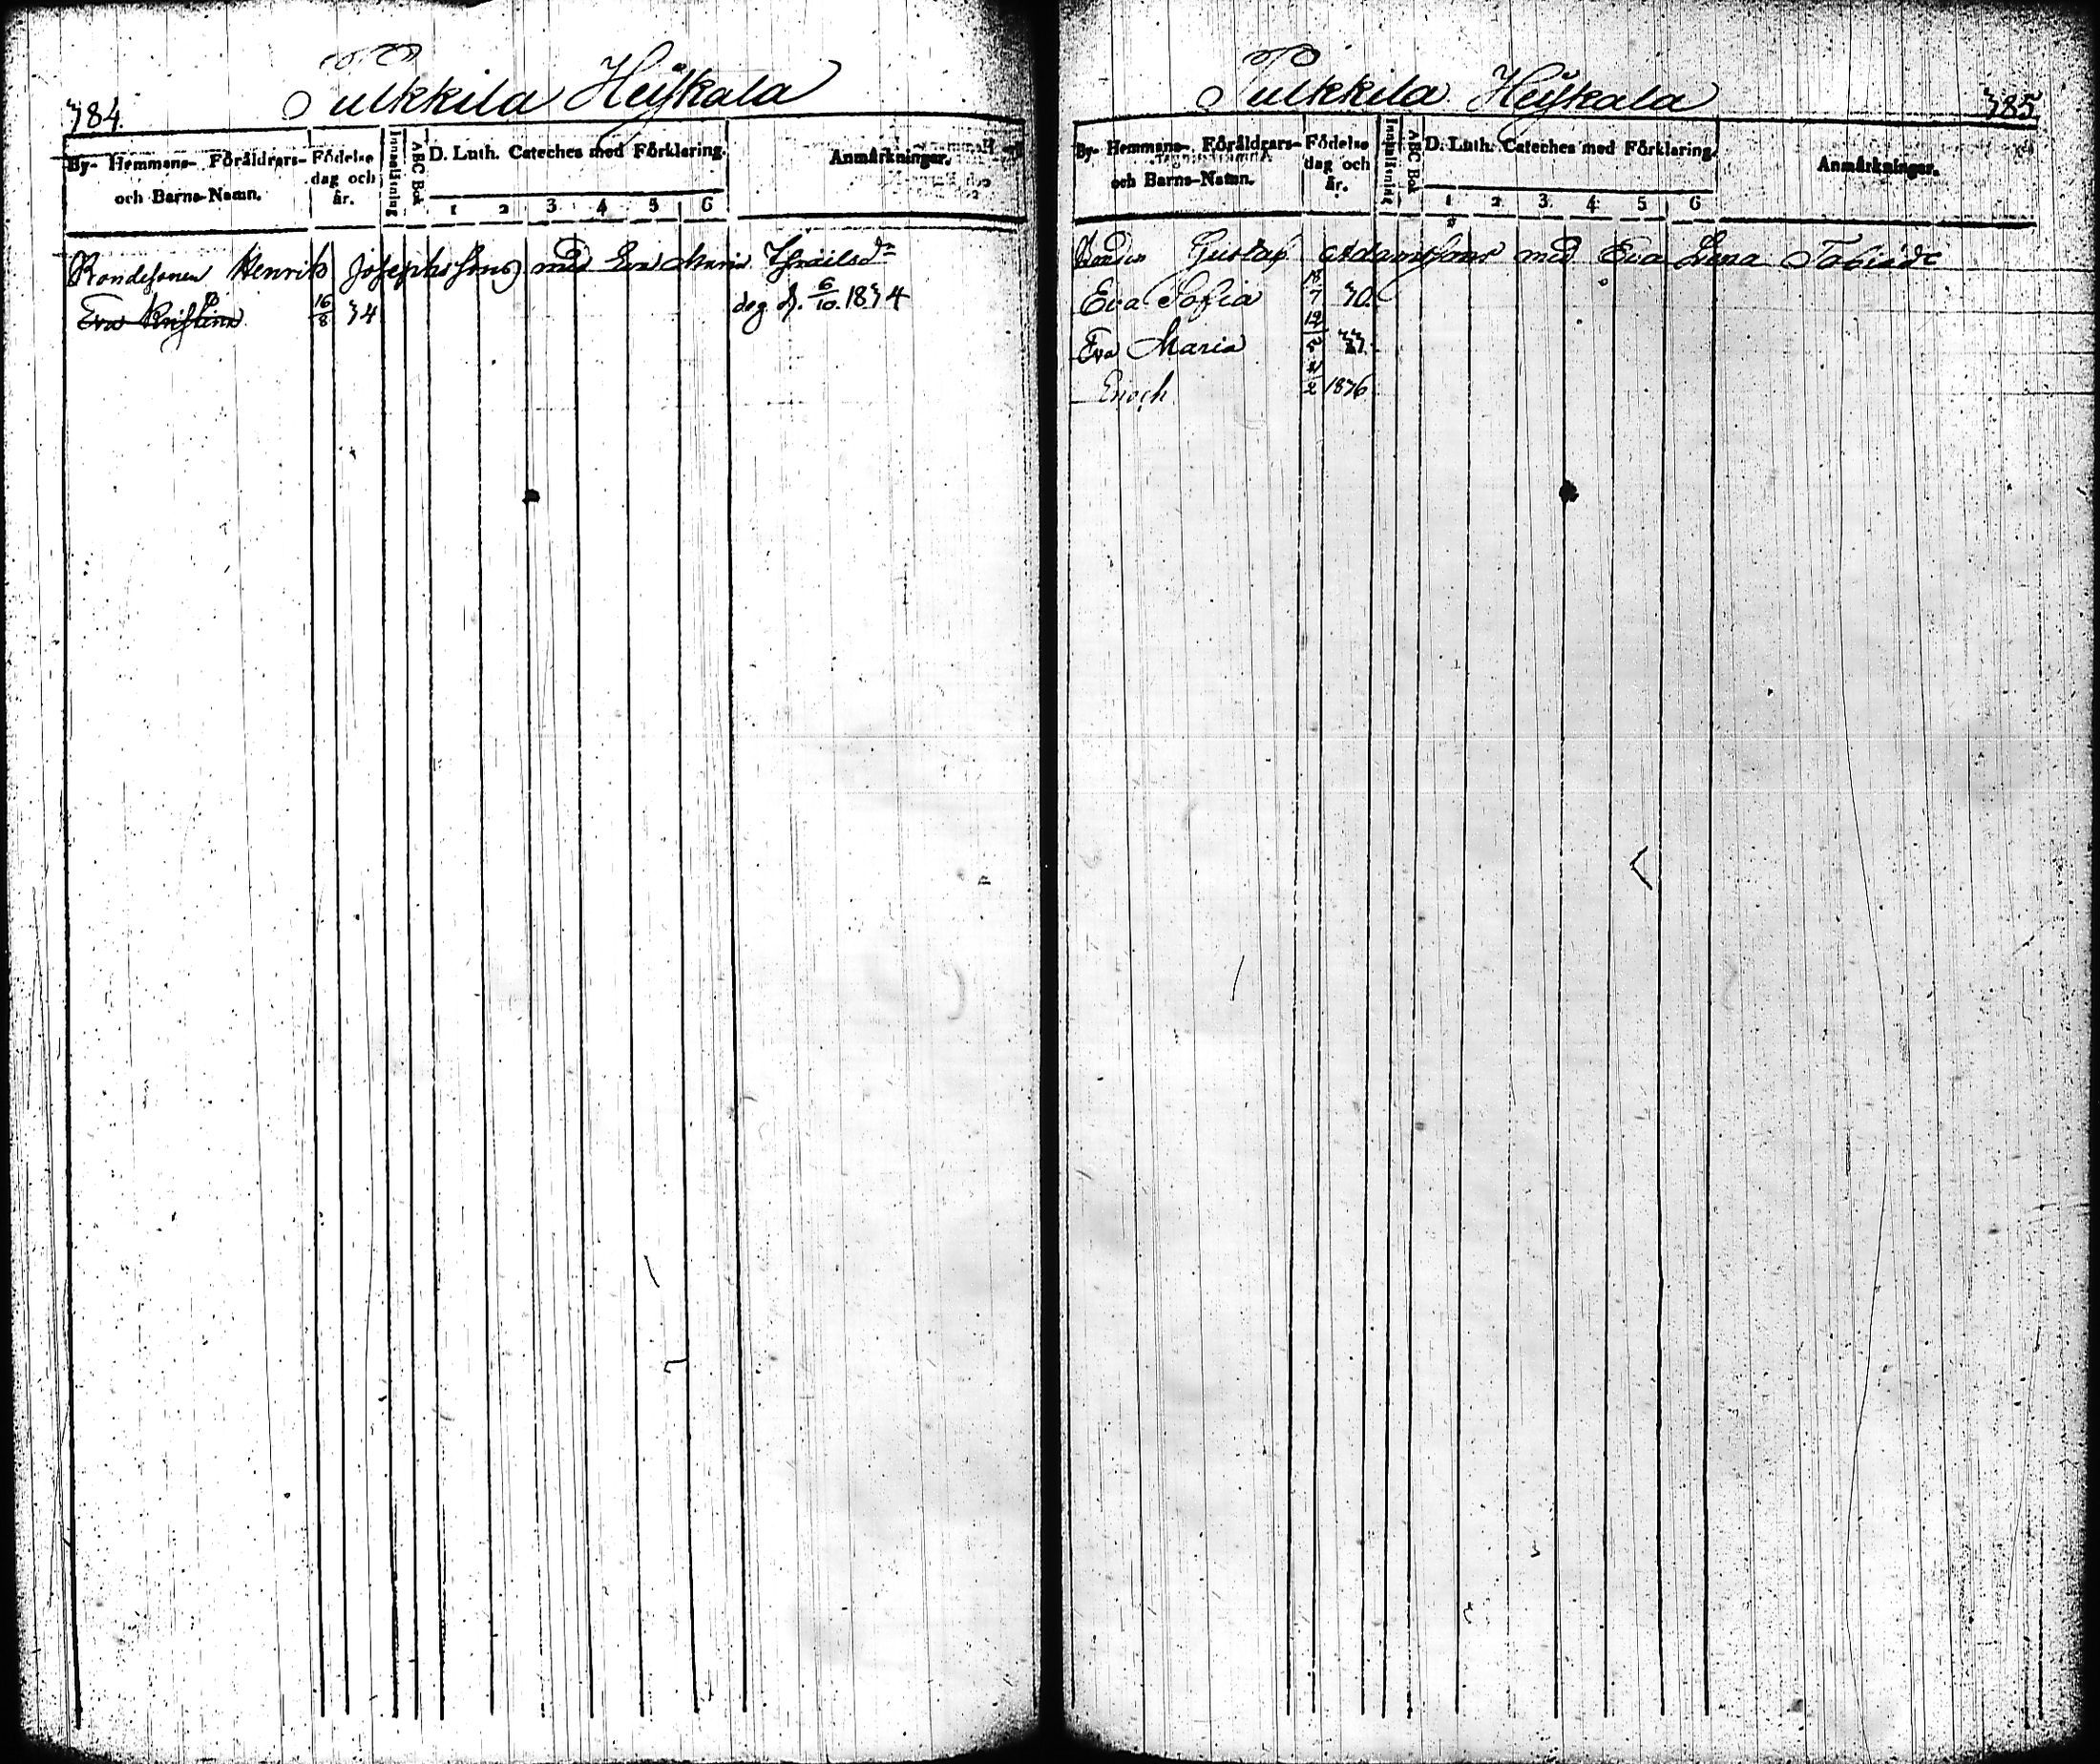 784.
Pulkkila Heiskala
By- Hemmans- Föräldrars-
och Barns-Namn.
Födelse
dag och
år.
Innanläsning
ABC Bok
D. Luth. Cateches med Förklaring.
1 2 3 4 5 6
Anmärkningar.
Bondesonen Henrik Josephssons med Eva Maria
Eva Kristina 16/8 74 deg d. 6/10. 1874
Pulkkila Heiskala
785.
By- Hemmans- Föräldrars-
och Barns-Namn.
Födelse
dag och
år.
Innanläsning
ABC Bok
D. Luth. Cateches med Förklaring.
1 2 3 4 5 6
Anmärkningar.
Gustaf Adamssons med Eva Lena
Eva Sofia 70.
Eva Maria
Enoch 1876